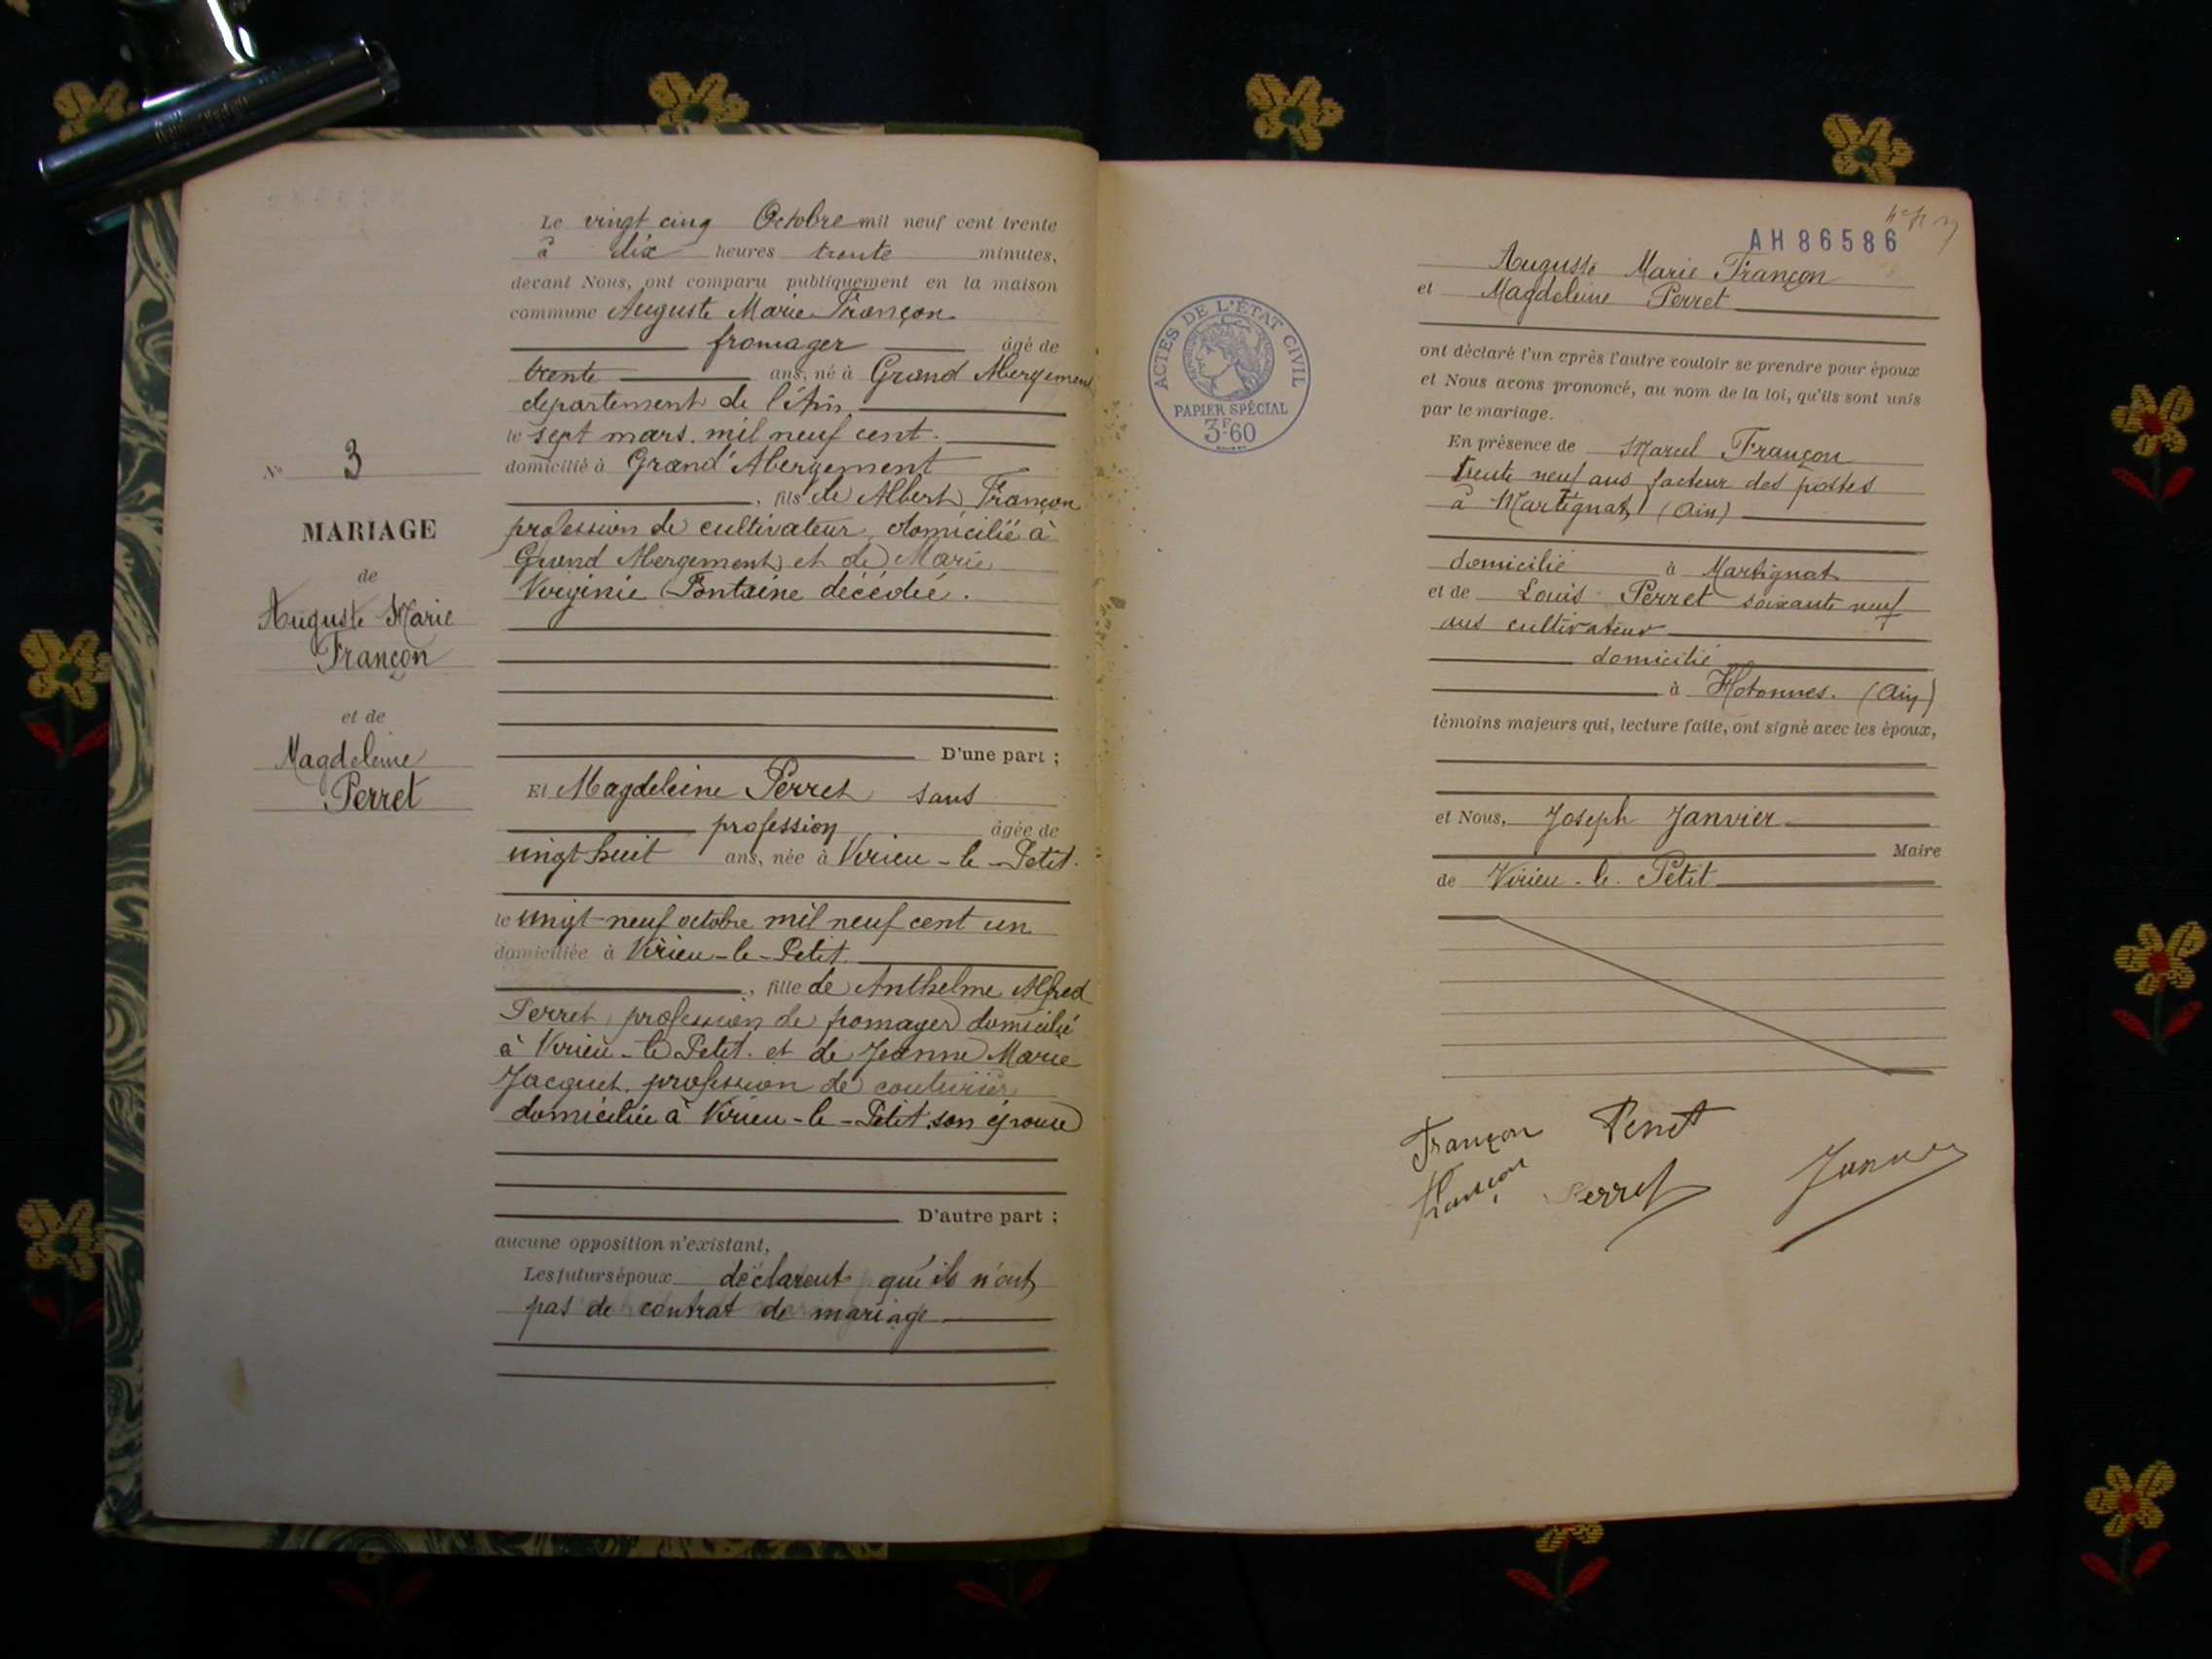 N° 3
MARIAGE
de
Auguste Marie
Françon
et de
Magdeleine
Perret
Le vingt cinq Octobre mil neuf cent trente
à dix heures trente minutes,
devant Nous, ont comparu publiquement en la maison
commune Auguste Marie Françon
fromager âgé de
trente ans, né à Grand Abergement
département de l'Ain
le sept mars mil neuf cent.
domicilié à Grand Abergement
, fils de Albert Françon
profession de cultivateur domicilié à
Grand Abergement et de Marie
Virginie Fontaine décédée.
D'une part ;
Et Magdeleine Perret sans
profession âgée de
vingt huit ans, née à Virieu-le-Petit.
le vingt-neuf octobre mil neuf cent un
domiciliée à Virieu-le-Petit
, fille de Anthelme Alfred
Perret, profession de fromager domicilié
à Virieu-le Petit. et de Jeanne Marie
Jacquet, profession de couturière
domiciliée à Virieu-le-Petit son épouse
D'autre part ;
aucune opposition n'existant,
Les futurs époux déclarent qu'ils n'ont
pas de contrat de mariage
AH 86586
ACTES DE L'ÉTAT CIVIL
PAPIER SPÉCIAL
3F60
Auguste Marie Françon
et Magdeleine Perret
ont déclaré l'un après l'autre vouloir se prendre pour époux
et Nous avons prononcé, au nom de la loi, qu'ils sont unis
par le mariage.
En présence de Marcel Françon
trente neuf ans facteur des postes
à Martignat (Ain)
domicilié à Martignat
et de Louis Perret soixante neuf
ans cultivateur
domicilié
à Hotonnes. (Ain)
témoins majeurs qui, lecture faite, ont signé avec les époux,
et Nous, Joseph Janvier
Maire
de Virieu-le-Petit
Françon Perret
Françon Perret Janvier